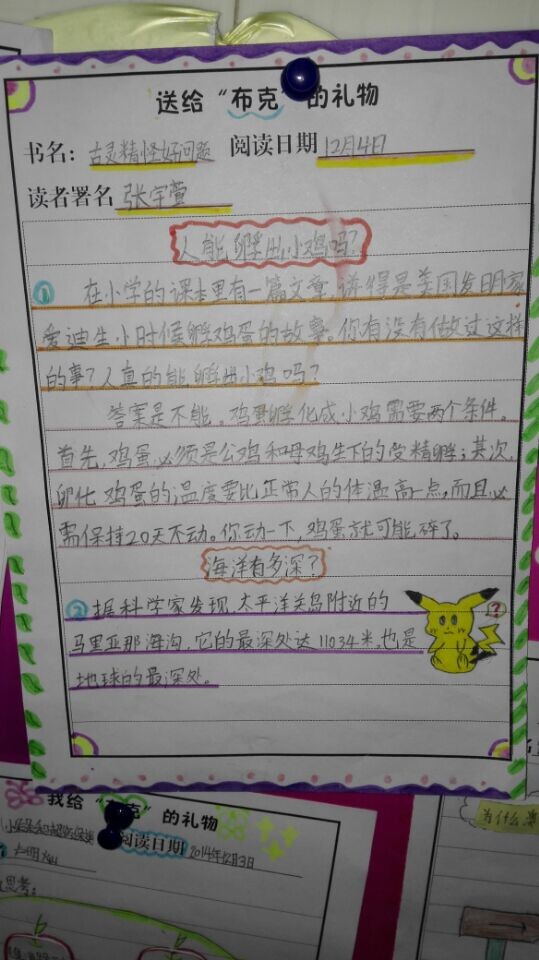 送给“布克”的礼物
书名：古灵精怪好问题 阅读日期 12月4日
读者署名 张宇萱
人能孵出小鸡吗？
① 在小学的课本里有一篇文章，讲得是美国发明家
爱迪生小时候孵鸡蛋的故事。你有没有做过这样
的事？人真的能孵出小鸡吗？
答案是不能。鸡蛋孵化成小鸡需要两个条件。
首先，鸡蛋必须是公鸡和母鸡生下的受精孵；其次，
卵化鸡蛋的温度要比正常人的体温高一点，而且必
需保持20天不动。你动一下，鸡蛋就可能碎了。
海洋有多深？
② 据科学家发现，太平洋关岛附近的
马里亚那海沟，它的最深处达11034米，也是
地球的最深处。
?
我给“布克”的礼物
阅读日期 2014年12月3日
思考：
为什么